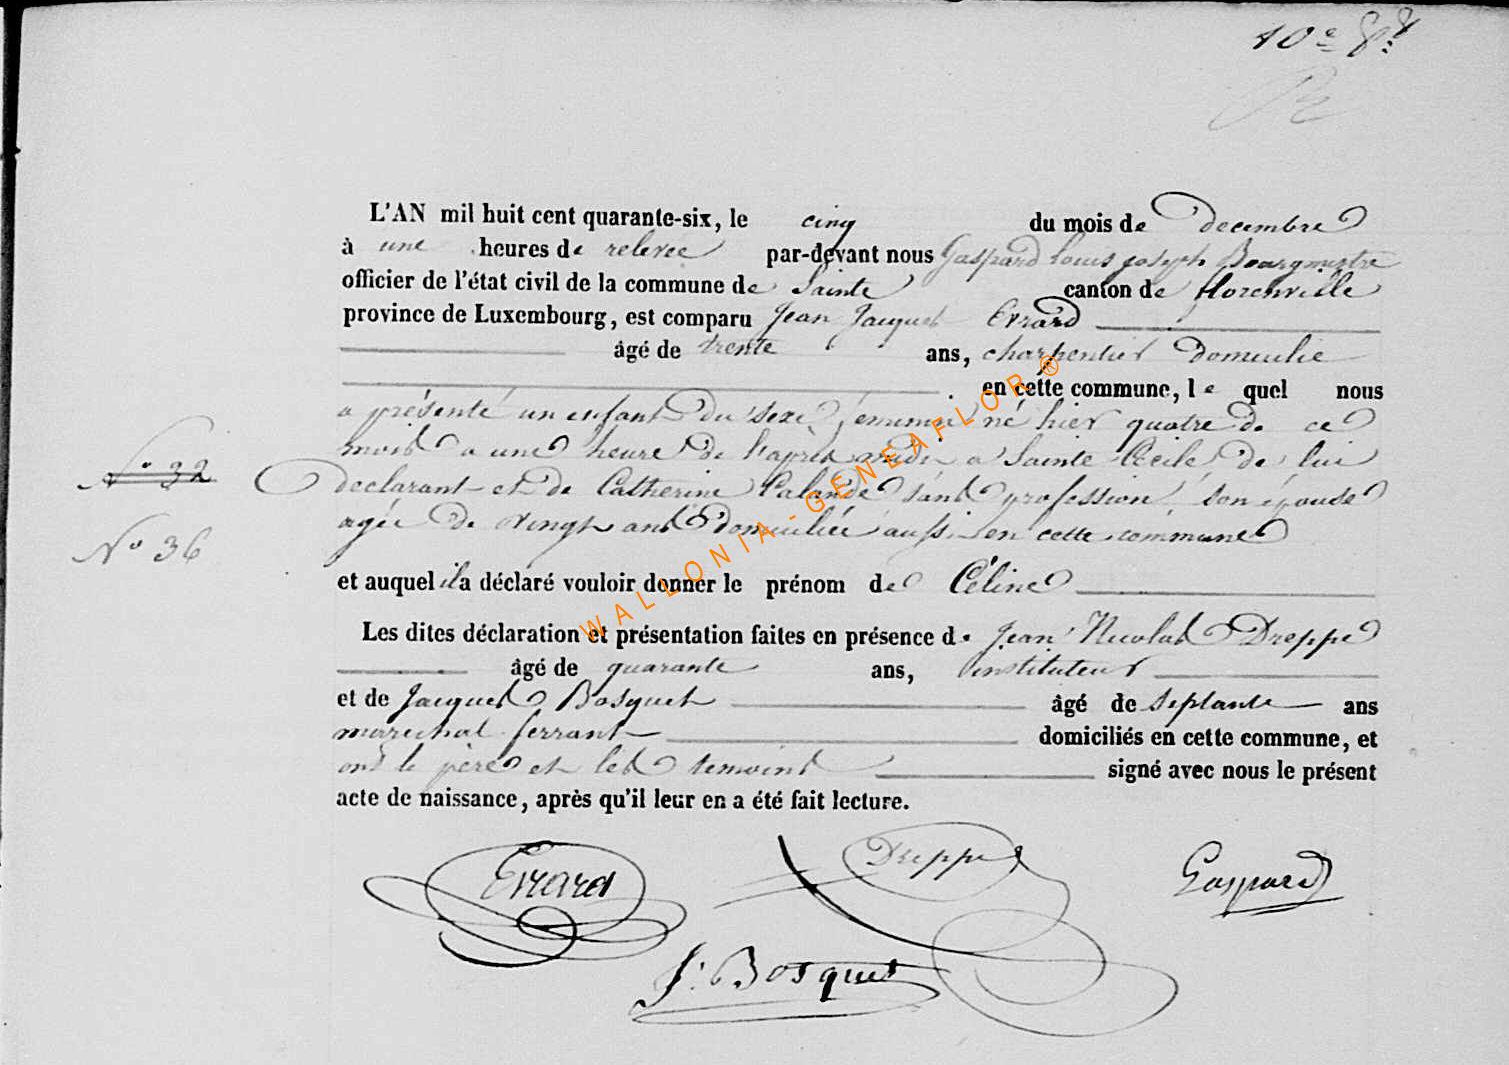 10e
L'AN mil huit cent quarante-six, le cinq du mois de decembre
à une heures de relevee par-devant nous Gaspard louis joseph Bourgmestre
officier de l'état civil de la commune de Sainte canton de florenville
province de Luxembourg, est comparu Jean Jacques Evrard
âgé de trente ans, charpentier domicilie
en cette commune, le quel nous
a présenté un enfant du sexe feminin né hier quatre de ce
mois a une heure de l'après midi a Sainte Cécile de lui
declarant et de Catherine Lalande sans profession, son épouse
agée de vingt ans domiciliée aussi en cette commune
et auquel il a déclaré vouloir donner le prénom de Céline
Les dites déclaration et présentation faites en présence de Jean Nicolas Dreppe
âgé de quarante ans, instituteur
et de Jacques Bosquet âgé de septante ans
marechal ferrant domiciliés en cette commune, et
ont le père et les temoins signé avec nous le présent
acte de naissance, après qu'il leur en a été fait lecture.
No 32
No 36
Evrard
Dreppe
Gaspard
J. Bosquet
WALLONIA-GENEAFLOR®